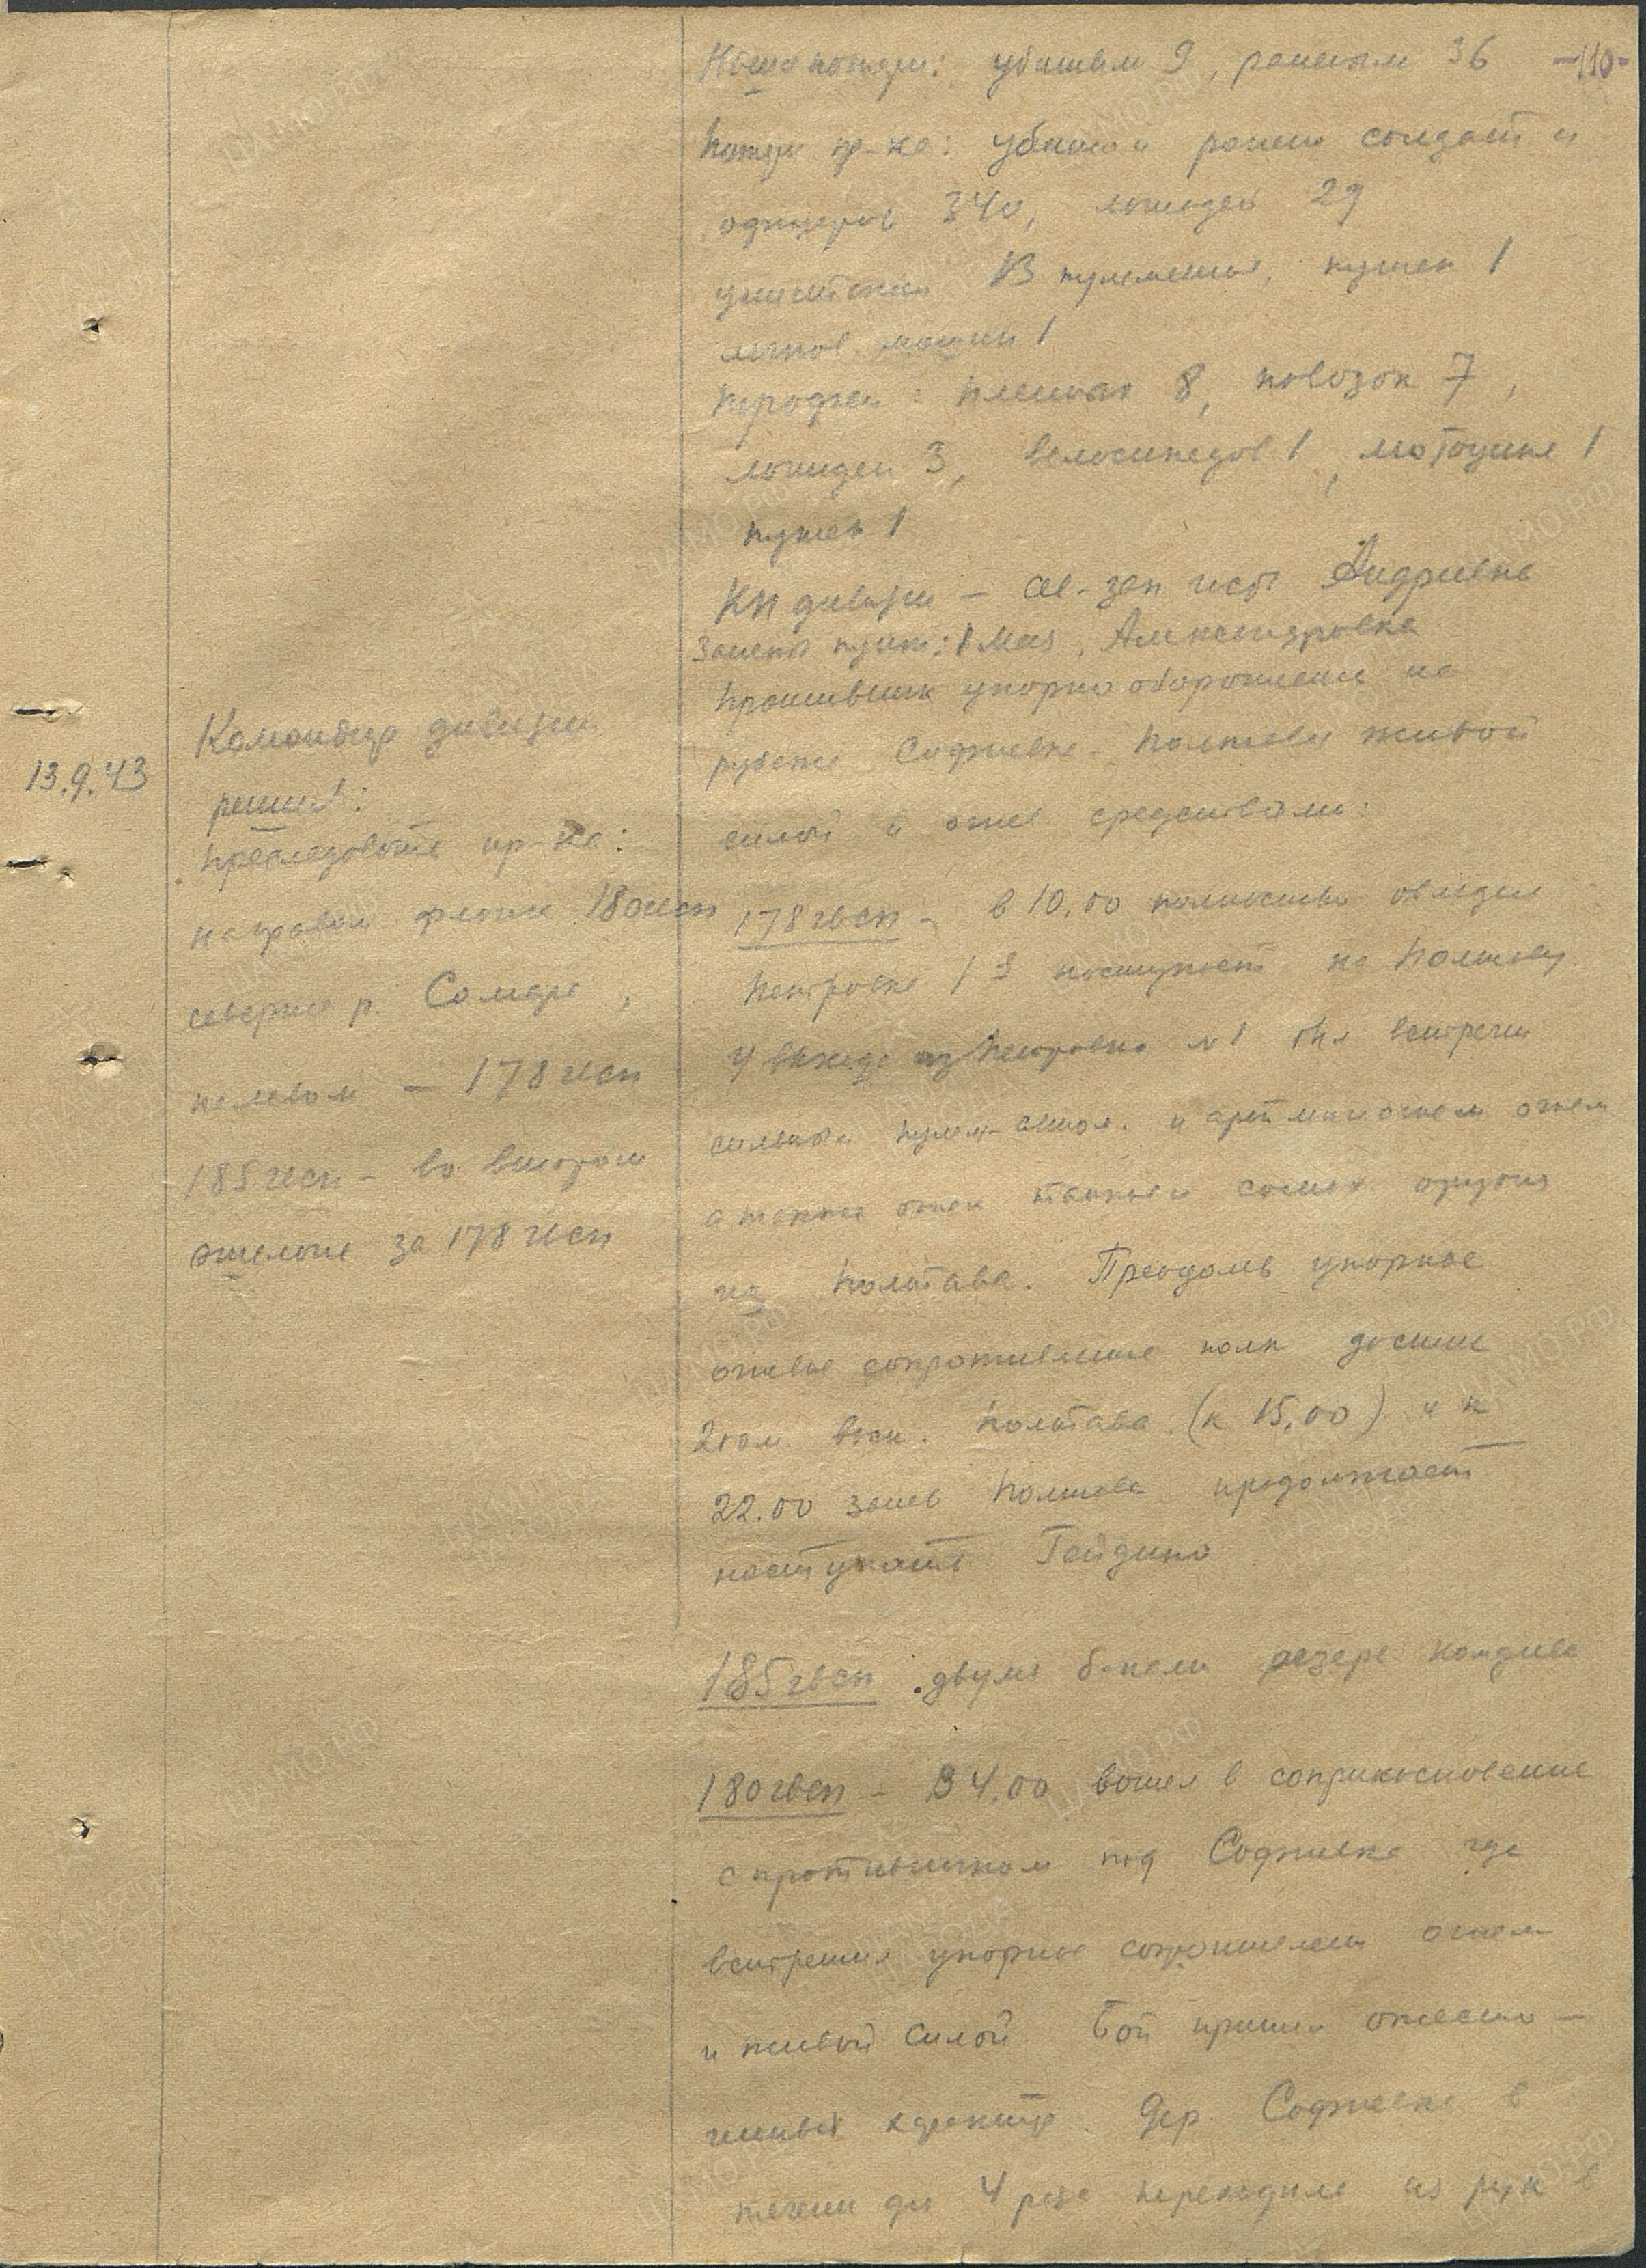 Наши потери: убитыми 9, ранеными 36 -110-
Потери пр-ка: убито и ранено солдат и
офицеров 340, лошадей 29
уничтожен 13 пулеметов, пушек 1
легков. машин 1
Трофеи: пленных 8, повозок 7,
лошадей 3, велосипедов 1, мотоцикл 1
пушек 1
КП дивизии - св.-зап часть Андриевка
Занято пункт: 1 Мая, Александровка
Противник упорно оборонялся на
рубеже Софиевка - Полтава живой
силой и огнев средствами:
13.9.43
Командир дивизии
решил:
преследовать пр-ка:
на правом фланге 180гвсп
севернее р. Самара,
на левом - 178 гвсп
185 гвсп - во втором
эшелоне за 178 гвсп
178 гвсп - в 10.00 полностью овладел
Петровка 1 и наступает на Полтаву
У выхода из Петровка №1 был встречен
сильным пулем- огнем
а также огнем танков и самох. орудий
из Полтава. Преодолев упорное
огневое сопротивление полк достиг
вост. Полтава (к 15.00) и к
22.00 занев Полтава продолжает
наступать Гейдина
185 гвсп двумя б-нами резерв комдива
180 гвсп - В 4.00 вошел в соприкосновение
с противником под Софиевка где
встретил упорное сопротивлен огнем
и живой силой. Бой принял ожесто-
ченный характер. Дер. Софиевка в
течени дня 4 раза переходила из рук в